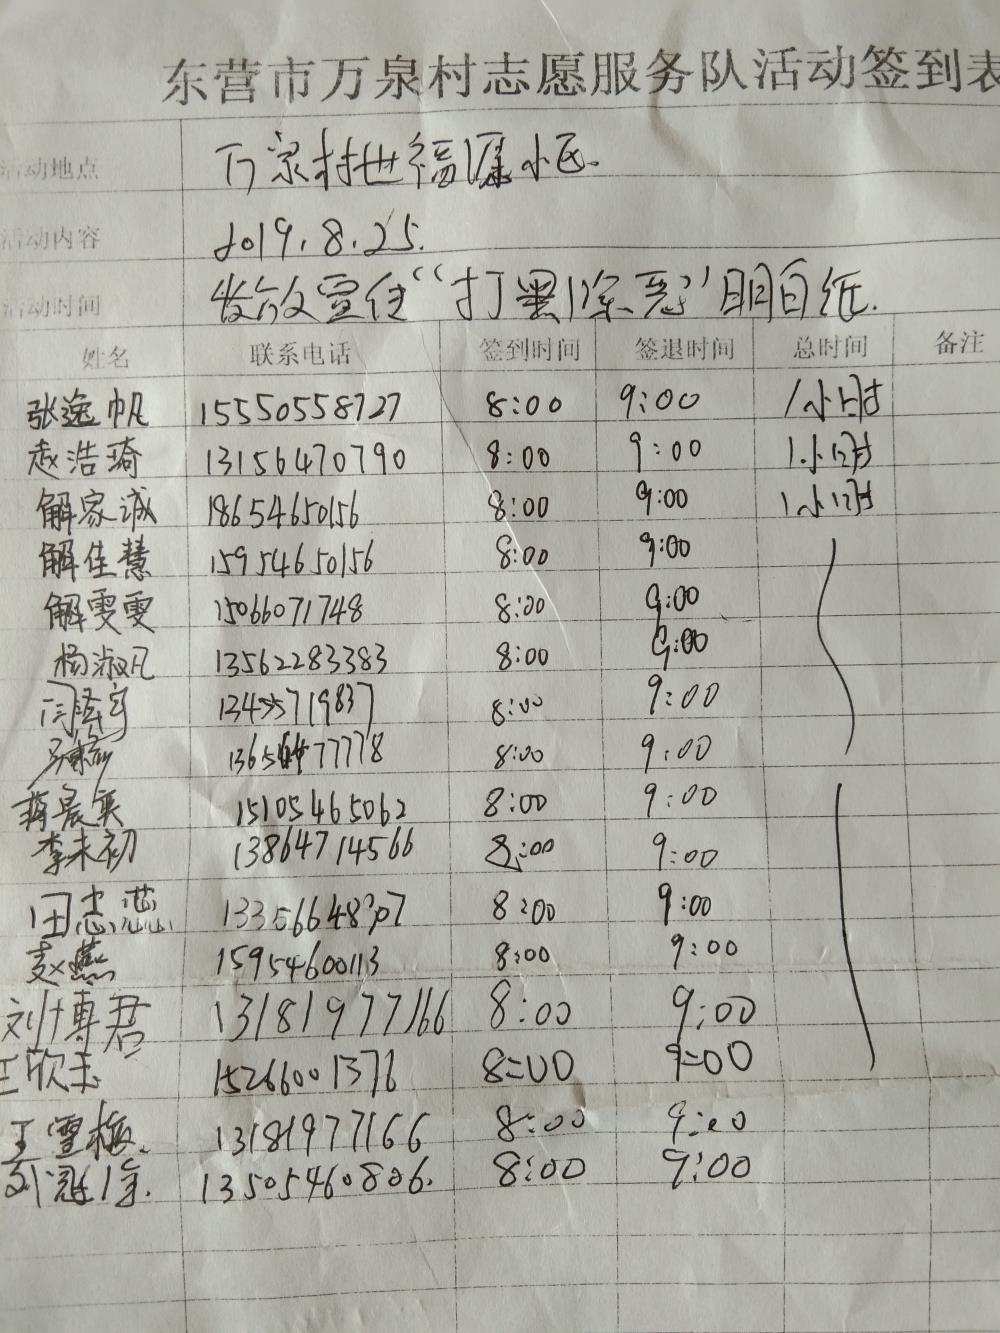 东营市万泉村志愿服务队活动签到表
活动地点 万泉村世福源小区.
活动内容 2019.8.25.
活动时间 发放宣传“打黑除恶”明白纸.
姓名 联系电话 签到时间 签退时间 总时间 备注
张逸帆 15550558727 8:00 9:00 1小时
赵浩琦 13156470790 8:00 9:00 1小时
解家诚 18654650156 8:00 9:00 1小时
解佳慧 15954650156 8:00 9:00
解雯雯 15066071748 8:00 9:00
杨淑凡 13562283383 8:00 9:00
8:00 9:00
8:00 9:00
蒋晨奕 15105465062 8:00 9:00
李未初 13864714566 8:00 9:00
田志蕊 8:00 9:00
赵燕 15954600113 8:00 9:00
刘博君 13181977166 8:00 9:00
王欣玉 15266001376 8:00 9:00
王雪梅. 13181977166 8:00 9:00
刘冠 13505460806. 8:00 9:00